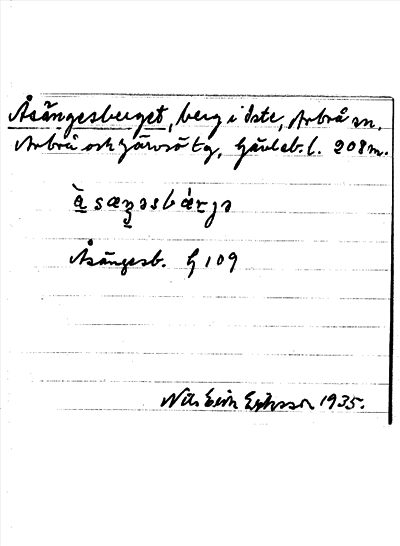 Åsängesberget, berg i Iste, Arbrå sn.
Arbrå och Järvsö tg, Gävleb. l. 208 m.
Åsängesb. G 109
Nils Erik Eriksson 1935.